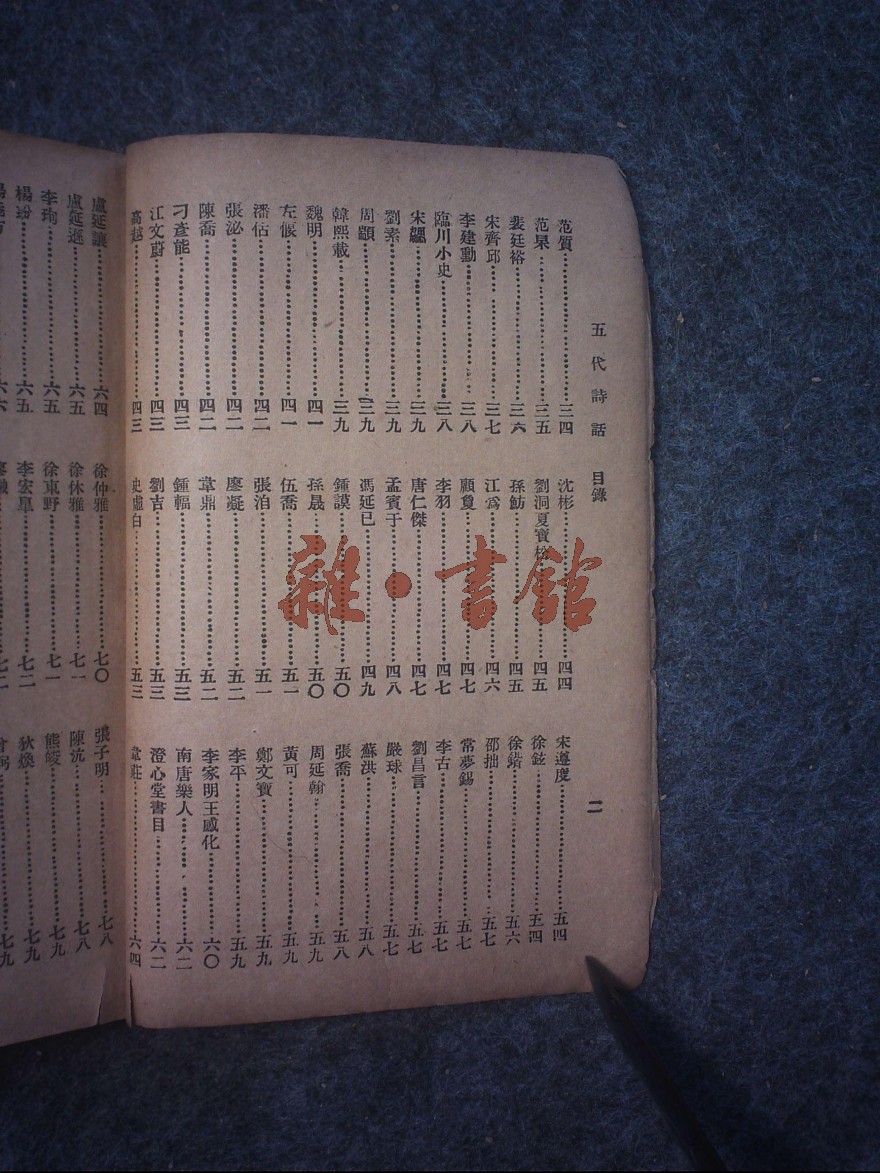 五代詩話 目錄 二
范質 三四
范杲 三五
裴廷裕 三六
宋齊邱 三七
李建勳 三八
臨川小史 三八
宋 三九
劉素 三九
周顗 三九
韓熙載 三九
魏明 四一
左偃 四一
潘佑 四二
張泌 四二
陳喬 四二
刁彥能 四三
江文蔚 四三
高越 四三
沈彬 四四
劉洞夏寶松 四五
孫魴 四五
江為 四六
顧敻 四七
李羽 四七
唐仁傑 四七
孟賓于 四八
馮延巳 四九
鍾謨 五〇
孫晟 五〇
伍喬 五一
張泊 五一
廖凝 五二
韋鼎 五二
鍾輻 五三
劉吉 五三
史虛白 五三
宋遵度 五四
徐鉉 五四
徐鍇 五六
邵拙 五七
常夢錫 五七
李古 五七
劉昌言 五七
嚴球 五七
蘇洪 五八
張喬 五八
周延翰 五九
黃可 五九
鄭文寶 五九
李平 五九
李家明王感化 六〇
南唐樂人 六二
澄心堂書目 六二
韋莊 六四
盧延讓 六四
盧延遜 六五
李珣 六五
楊玢 六五
六六
徐仲雅 七〇
徐休雅 七一
徐東野 七一
李宏皋 七二
七二
張子明 七八
陳沆 七八
熊皎 七九
狄煥 七九
七九
雜·書館